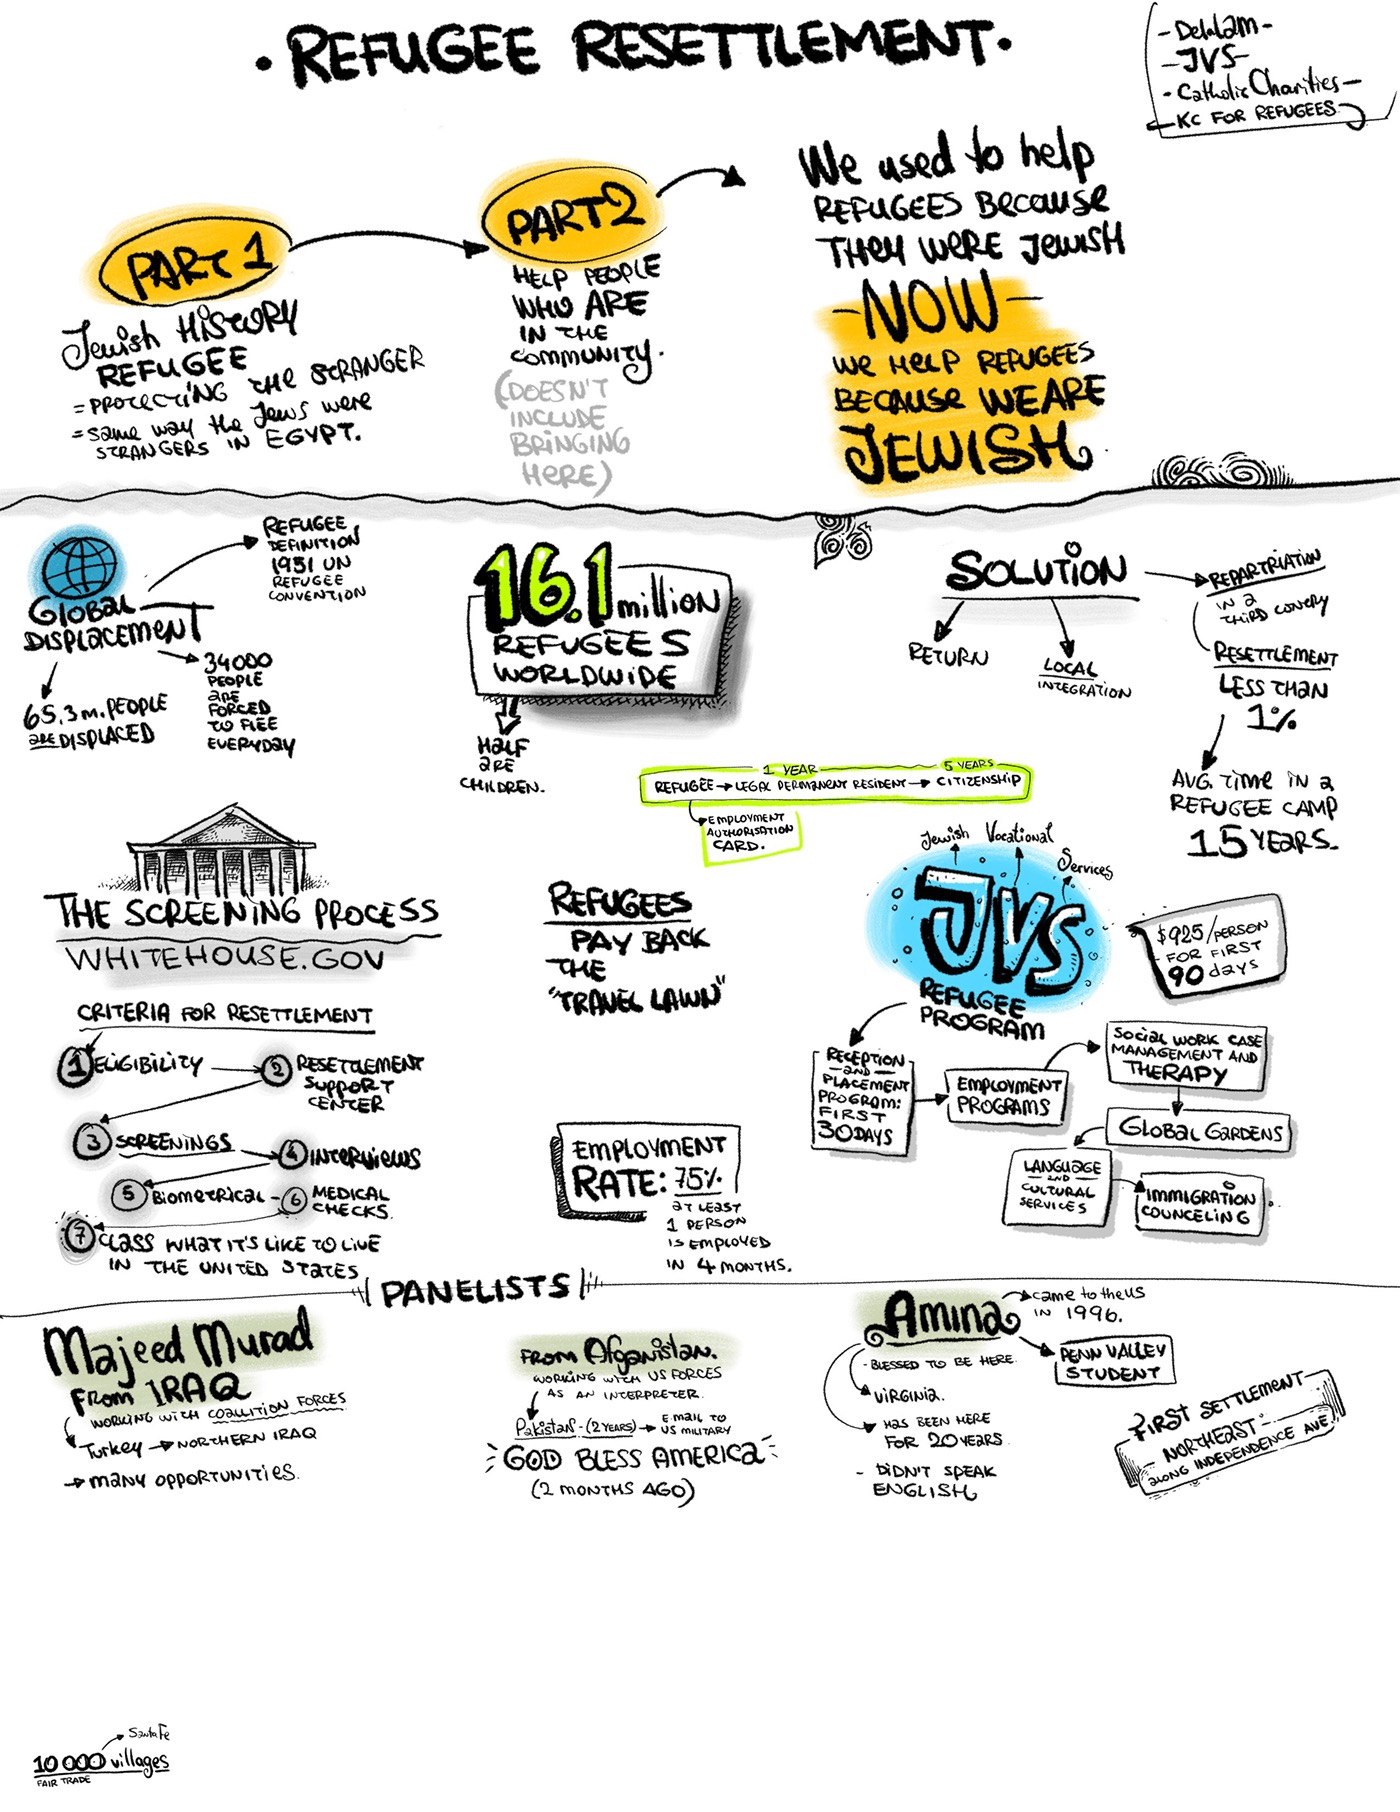 • REFUGEE RESETTLEMENT •
- DeLaSam -
- JVS -
- Catholic Charities -
KC FOR REFUGEES
PART 1
Jewish HISTORY
REFUGEE
= PROTECTING THE STRANGER
= same way the Jews were
STRANGERS IN EGYPT.
PART 2
HELP PEOPLE
WHO ARE
IN THE
COMMUNITY.
(DOESN'T
INCLUDE
BRINGING
HERE)
We used to help
REFUGEES Because
THEY WERE JEWISH
- NOW -
WE HELP REFUGEES
BECAUSE WE ARE
JEWISH
GLOBAL
DISPLACEMENT
REFUGEE
DEFINITION
1951 UN
REFUGEE
CONVENTION
65.3 m. PEOPLE
are DISPLACED
34000
PEOPLE
are
FORCED
TO FLEE
EVERYDAY
16.1 million
REFUGEES
WORLDWIDE
HALF
ARE
CHILDREN.
SOLUTION
RETURN
LOCAL
INTEGRATION
REPARTRIATION
IN a
THIRD CONTRY
RESETTLEMENT
LESS THAN
1%
AVG. TIME IN a
REFUGEE CAMP
15 YEARS.
1 YEAR
5 YEARS
REFUGEE → LEGAL PERMANENT RESIDENT → CITIZENSHIP
EMPLOYMENT
AUTHORISATION
CARD.
THE SCREENING PROCESS
WHITEHOUSE.GOV
CRITERIA FOR RESETTLEMENT
1 ELIGIBILITY
2 RESETTLEMENT
SUPPORT
CENTER
3 SCREENINGS
4 INTERVIEWS
5 BIOMETRICAL -
6 MEDICAL
CHECKS.
7 CLASS WHAT IT'S LIKE TO LIVE
IN THE UNITED STATES
REFUGEES
PAY BACK
THE
"TRAVEL LAWN"
EMPLOYMENT
RATE: 75%
AT LEAST
1 PERSON
IS EMPLOYED
IN 4 MONTHS.
Jewish Vocational Services
JVS
REFUGEE
PROGRAM
$925/PERSON
FOR FIRST
90 days
RECEPTION
- AND -
PLACEMENT
PROGRAM:
FIRST
30 DAYS
EMPLOYMENT
PROGRAMS
SOCIAL WORK CASE
MANAGEMENT AND
THERAPY
GLOBAL GARDENS
LANGUAGE
- AND -
CULTURAL
SERVICES
IMMIGRATION
COUNCELING
PANELISTS
Majeed Murad
FROM IRAQ
WORKING WITH COALITION FORCES
Turkey → NORTHERN IRAQ
→ MANY OPPORTUNITIES.
FROM Afganistan.
WORKING WITH US FORCES
AS AN INTERPRETER.
Pakistan - (2 YEARS) → E.MAIL TO
US MILITARY
GOD BLESS AMERICA
(2 MONTHS AGO)
Amina
came to the US
IN 1996.
PENN VALLEY
STUDENT
- BLESSED TO BE HERE.
VIRGINIA.
HAS BEEN HERE
FOR 20 YEARS
- DIDN'T SPEAK
ENGLISH
FIRST SETTLEMENT
NORTHEAST
ALONG INDEPENDENCE AVE.
Santa Fe
10 000 villages
FAIR TRADE